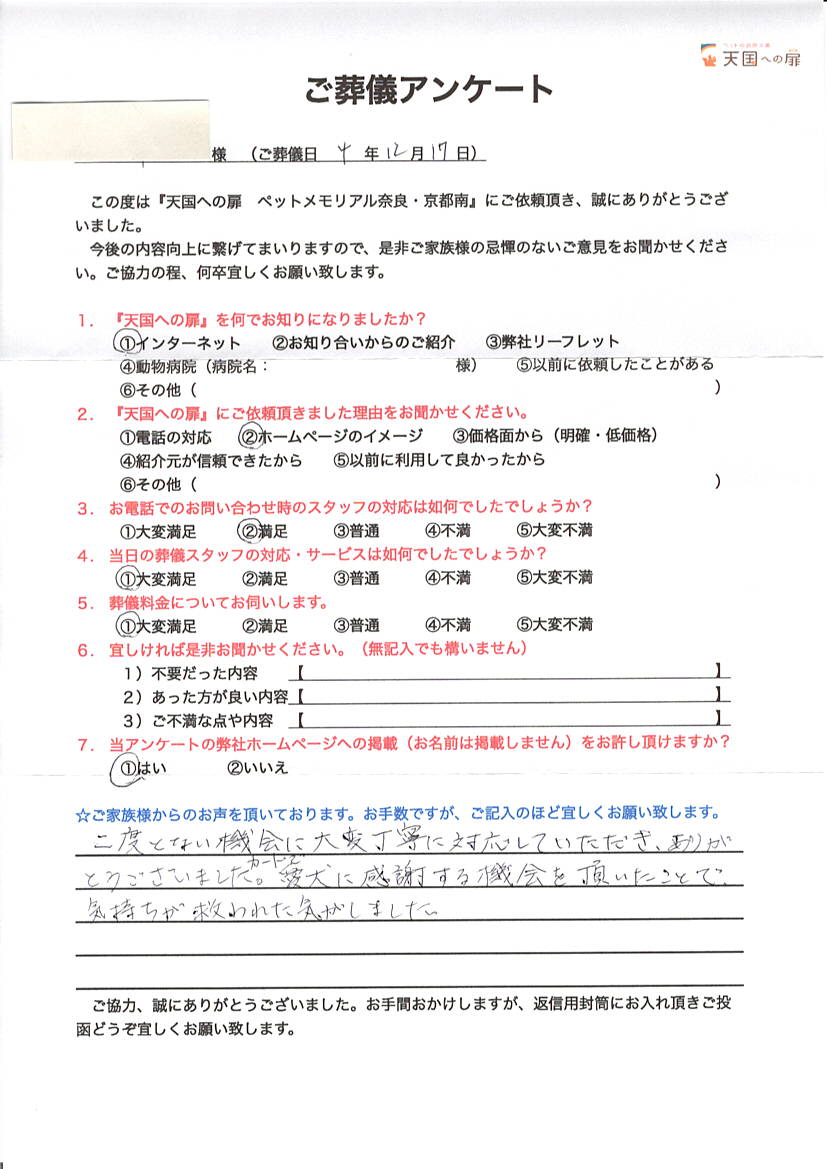 天国への扉
ご葬儀アンケート
様 （ご葬儀日 4 年 12 月 17 日）
この度は『天国への扉 ペットメモリアル奈良・京都南』にご依頼頂き、誠にありがとうござ
いました。
今後の内容向上に繋げてまいりますので、是非ご家族様の忌憚のないご意見をお聞かせくださ
い。ご協力の程、何卒宜しくお願い致します。
1．『天国への扉』を何でお知りになりましたか？
①インターネット ②お知り合いからのご紹介 ③弊社リーフレット
④動物病院（病院名： 様） ⑤以前に依頼したことがある
⑥その他（ ）
2．『天国への扉』にご依頼頂きました理由をお聞かせください。
①電話の対応 ②ホームページのイメージ ③価格面から（明確・低価格）
④紹介元が信頼できたから ⑤以前に利用して良かったから
⑥その他（ ）
3．お電話でのお問い合わせ時のスタッフの対応は如何でしたでしょうか？
①大変満足 ②満足 ③普通 ④不満 ⑤大変不満
4．当日の葬儀スタッフの対応・サービスは如何でしたでしょうか？
①大変満足 ②満足 ③普通 ④不満 ⑤大変不満
5．葬儀料金についてお伺いします。
①大変満足 ②満足 ③普通 ④不満 ⑤大変不満
6．宜しければ是非お聞かせください。（無記入でも構いません）
1）不要だった内容 【 】
2）あった方が良い内容【 】
3）ご不満な点や内容 【 】
7．当アンケートの弊社ホームページへの掲載（お名前は掲載しません）をお許し頂けますか？
①はい ②いいえ
☆ご家族様からのお声を頂いております。お手数ですが、ご記入のほど宜しくお願い致します。
二度とない機会に大変丁寧に対応していただき、ありが
とうございました。カードで愛犬に感謝する機会を頂いたことで、
気持ちが救われた気がしました。
ご協力、誠にありがとうございました。お手間おかけしますが、返信用封筒にお入れ頂きご投
函どうぞ宜しくお願い致します。